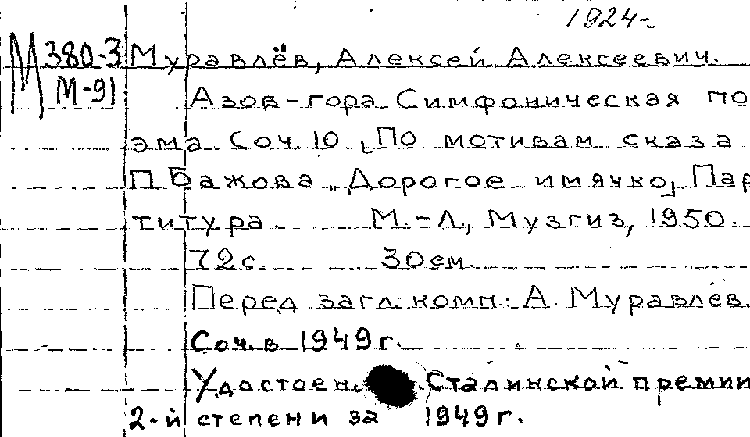 1924-
М 380-3 Муравлёв, Алексей Алексеевич.
М-91 Азов-гора. Симфоническая по
эма. Соч. 10. [По мотивам сказа
П. Бажова „Дорогое имячко"] Пар
титура. М.-Л., Музгиз, 1950.
72 с. 30 см.
Перед загл. комп.: А. Муравлев.
Соч. в 1949 г.
Удостоен. Сталинской премии
2-й степени за 1949 г.